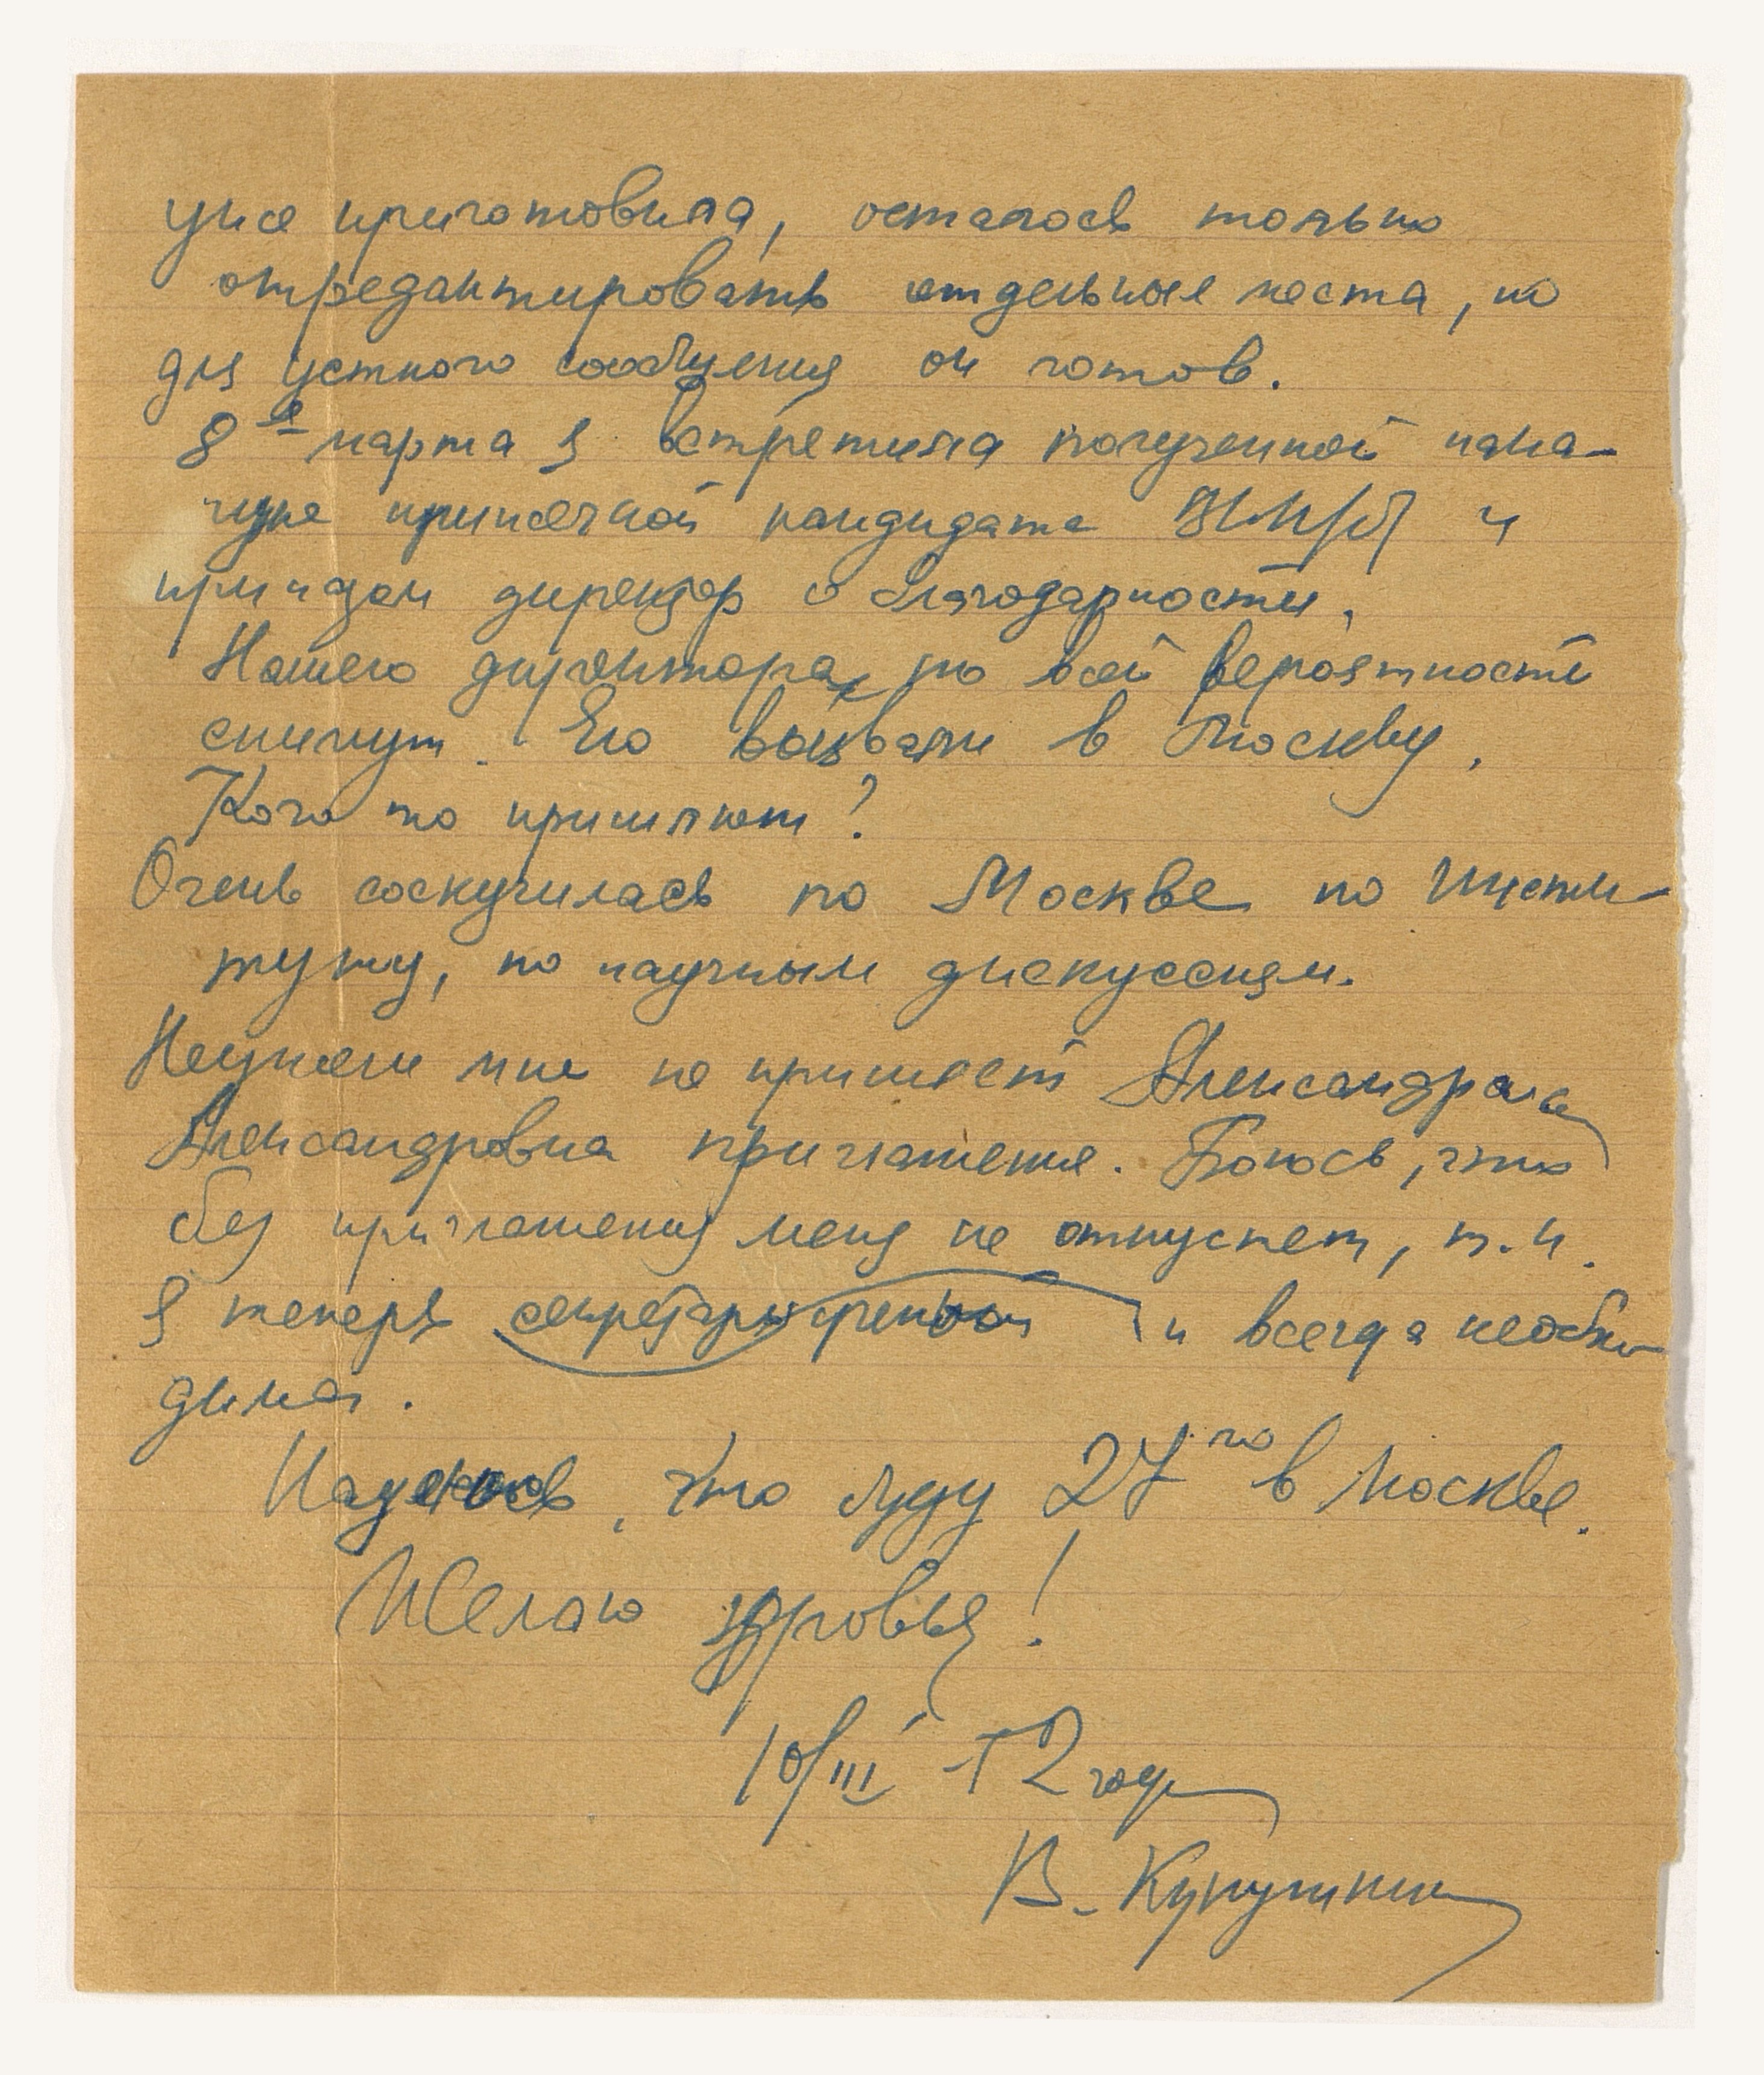 уже приготовила, осталось только
отредактировать отдельные места, но
для устного сообщения он готов.
8е марта я встретила полученной нака-
нуне приметной кандидата и
приказом директор о благодарности.
Нашего директора, по всей вероятности
снимут. Его вызвали в Москву.
Кого то пришлют?
Очень соскучилась по Москве по Инсти-
туту, по научным дискуссиям.
Неужели мне не пришлет Александра
Александровна приглашение. Боюсь, что
без приглашения меня не отпускает, т.к.
я теперь секретарь и всегда необхо-
дима.
Надеюсь, что буду 27го в Москве.
Желаю здоровья!
10/III 52 год
В. Купушкина